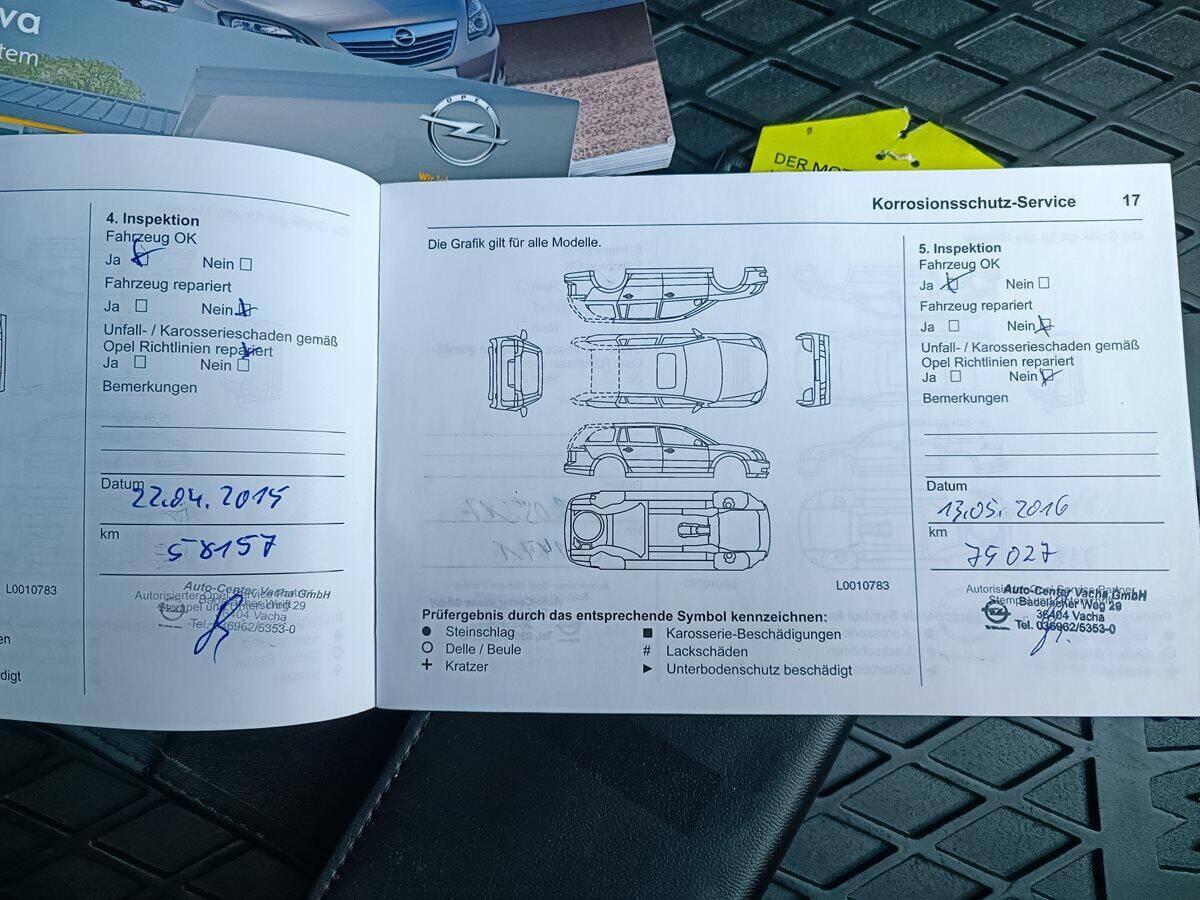 va
tem
OPEL
DER MOT
4. Inspektion
Fahrzeug OK
Ja Nein
Fahrzeug repariert
Ja Nein
Unfall- / Karosserieschaden gemäß
Opel Richtlinien repariert
Ja Nein
Bemerkungen
Datum
22.04.2015
km
58157
L0010783
Auto-Center Vacha GmbH
Badelacher Weg 29
36404 Vacha
Tel. 036962/5353-0
en
digt
Korrosionsschutz-Service 17
Die Grafik gilt für alle Modelle.
L0010783
Prüfergebnis durch das entsprechende Symbol kennzeichnen:
Steinschlag
Delle / Beule
Kratzer
Karosserie-Beschädigungen
# Lackschäden
Unterbodenschutz beschädigt
5. Inspektion
Fahrzeug OK
Ja Nein
Fahrzeug repariert
Ja Nein
Unfall- / Karosserieschaden gemäß
Opel Richtlinien repariert
Ja Nein
Bemerkungen
Datum
13.05.2016
km
79027
Autorisierter Opel Service Partner
Auto-Center Vacha GmbH
Badelacher Weg 29
36404 Vacha
Tel. 036962/5353-0